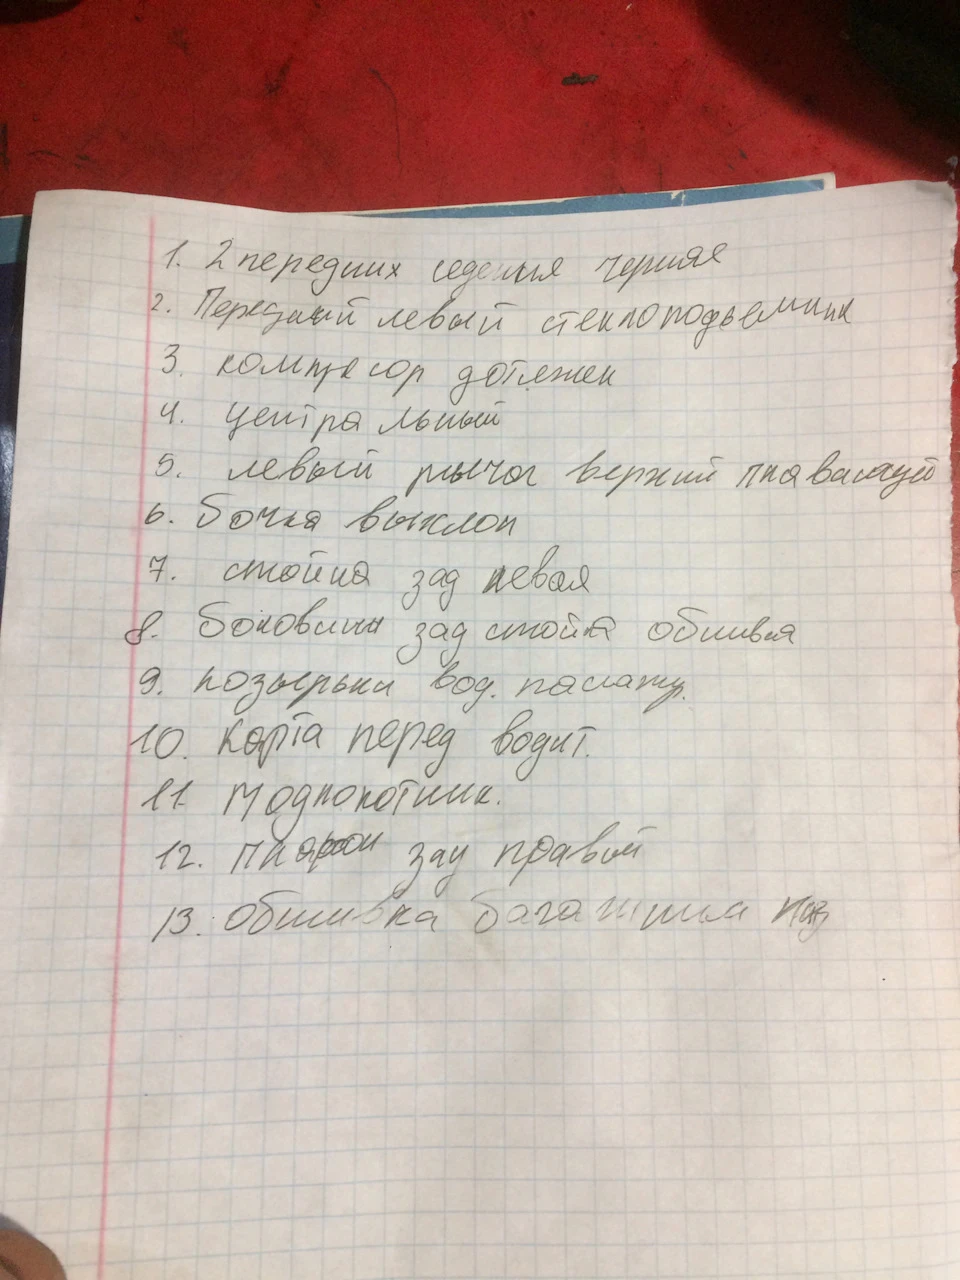 1. 2 передних седенья черные
2. Передний левый стеклоподъемник
3. компресор
4. центральный
5. левый рычаг верхний плавающий
6. бочка выхлоп
7. стойка зад левая
8. боковины зад стойка обшивка
9. козырьки вод. пасажир.
10. карта перед водит.
11. Подлокотник.
12. плафон зад правый
13. обшивка багажника